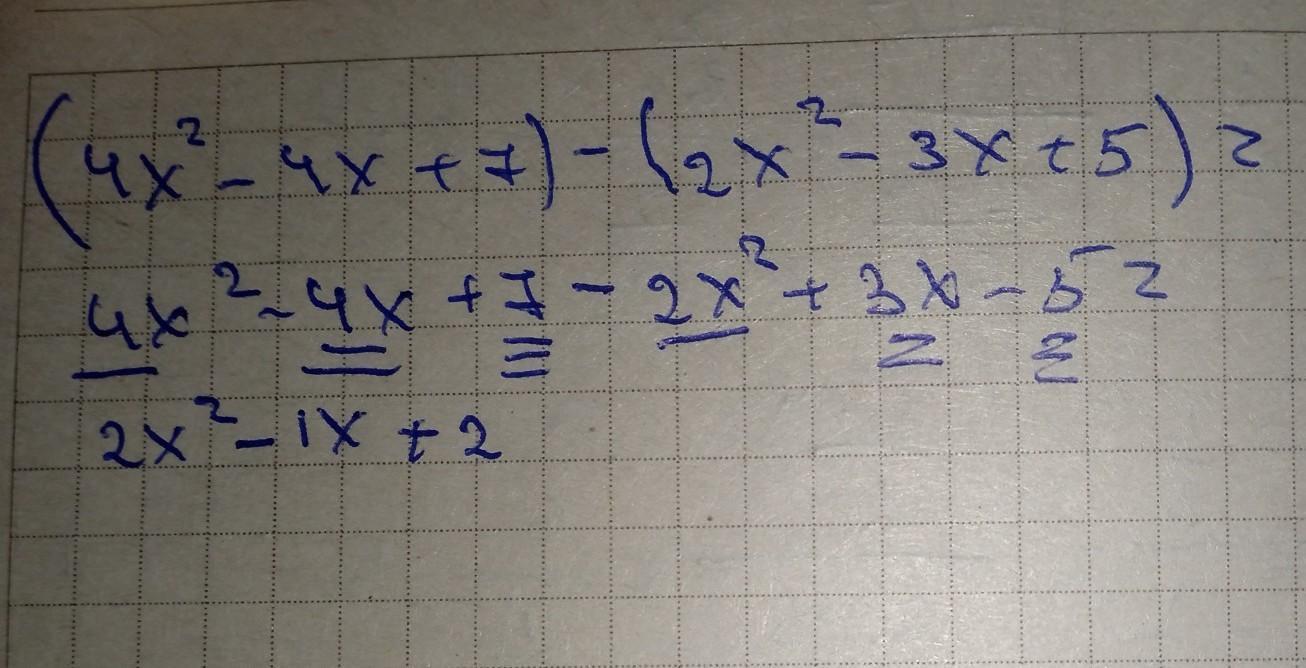 (4x² - 4x + 7) - (2x² - 3x + 5) =
4x² - 4x + 7 - 2x² + 3x - 5 =
2x² - 1x + 2